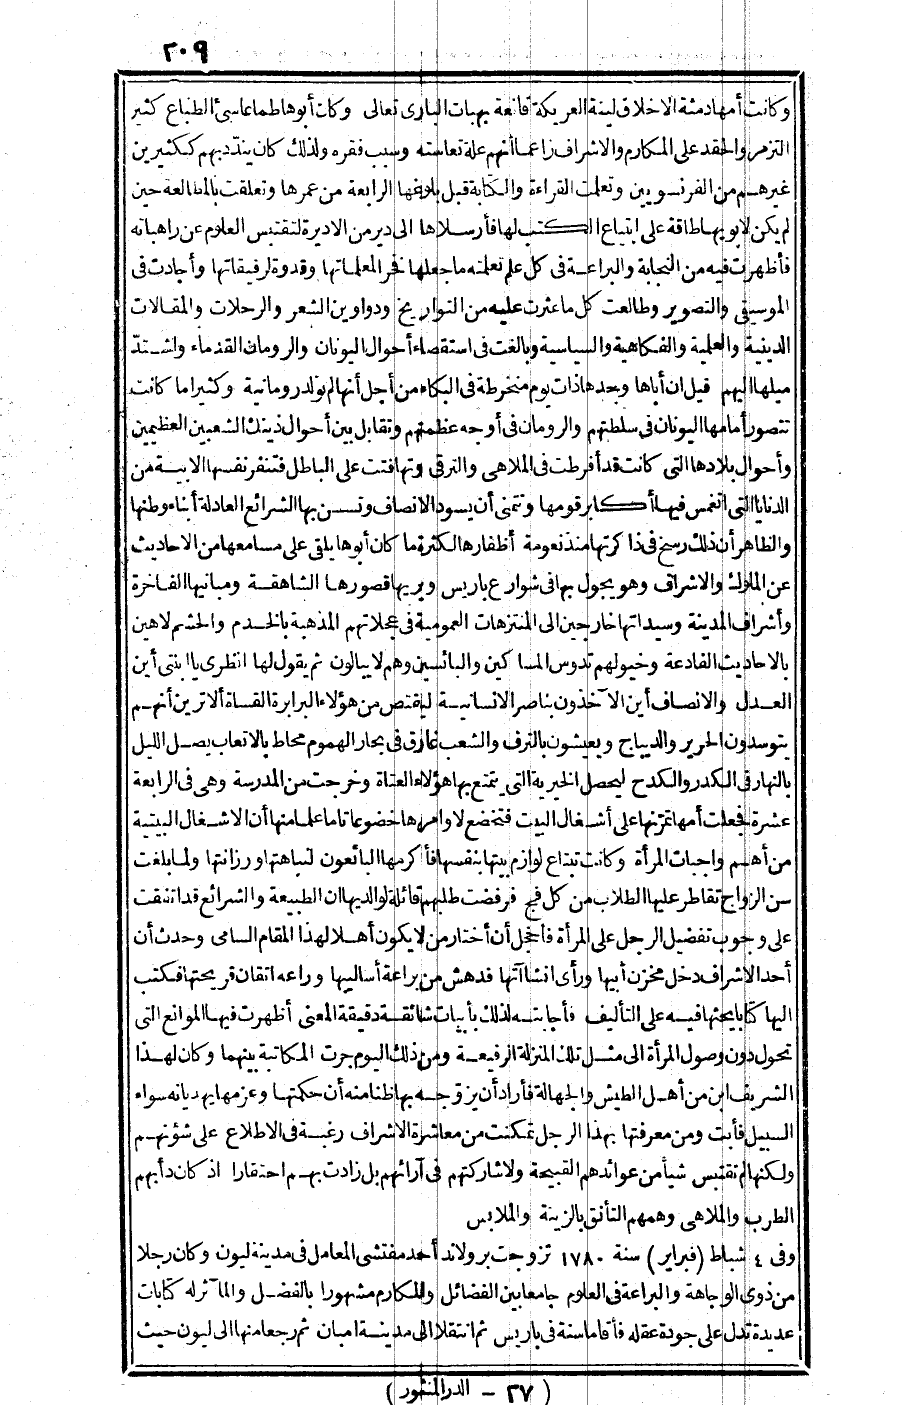 ٢٠٩
وكانت أمها دمثة الاخلاق لينة العريكة قانعة بهبات البارى تعالى وكان أبوها طماعا سئ الطباع كثير
التزمر والحقد على المكارم والاشراف زاعما أنهم علة تعاسته وسبب فقره ولذلك كان يندّد بهم ككثيرين
غيرهم من الفرنسويين وتعلمت القراءة والكتابة قبل بلوغها الرابعة من عمرها وتعلقت بالمطالعة حين
لم يكن لابويها طاقة على ابتياع الكتب لها فأرسلاها الى دير من الاديرة لتقتبس العلوم عن راهباته
فأظهرت فيه من النجابة والبراعة فى كل علم تعلمته ما جعلها فخر المعلماتها وقدوة لرفيقاتها وأجادت فى
الموسيقى والتصوير وطالعت كل ما عثرت عليه من التواريخ ودواوين الشعر والرحلات والمقالات
الدينية والعلمية والفكاهية والسياسية وبالغت فى استقصاء أحوال اليونان والرومان القدماء واشتدّ
ميلها اليهم قيل ان أباها وجدها ذات يوم منخرطة فى البكاء من أجل أنها لم تولد رومانية وكثيرا ما كانت
تتصور أمامها اليونان فى سلطتهم والرومان فى أوج عظمتهم وتقابل بين أحوال ذينك الشعبين العظيمين
وأحوال بلادها التى كانت قد أفرطت فى الملاهى والترقى وتهافتت على الباطل فتنفر نفسها الابية من
الدنايا التى انغمس فيها أكابر قومها وتتمنى أن يسود الانصاف وتسن بها الشرائع العادلة أبناء وطنها
والظاهر أن ذلك رسخ فى ذاكرتها منذ نعومة أظفارها لكثرة ما كان أبوها يلقى على مسامعها من الاحاديث
عن الملوك والاشراف وهو يجول بها فى شوارع باريس ويريها قصورها الشاهقة ومبانيها الفاخرة
وأشراف المدينة وسيداتها خارجين الى المنتزهات العمومية فى عجلاتهم المذهبة بالخدم والحشم لاهين
بالاحاديث الفادعة وخيولهم تدوس المساكين والبائسين وهم لا يبالون ثم يقول لها انظرى يا ابنتى أين
العدل والانصاف أين الآخذون بناصر الانسانية ليقتص من هؤلاء البرابرة القساة ألا ترين أنهم
يتوسدون الحرير والديباج ويعيشون بالترف والشعب غارق فى بحار الهموم محاط بالاتعاب يصل الليل
بالنهار فى الكدر والكدح ليحصل الخيرية التى يتمتع بها هؤلاء العتاة وخرجت من المدرسة وهى فى الرابعة
عشرة فجعلت أمها تمرّنها على أشغال البيت فتخضع لاوامرها خضوعا تاما علما منها أن الاشغال البيتية
من أهم واجبات المرأة وكانت تبتاع لوازم بيتها بنفسها فأكرمها البائعون لنباهتها ورزانتها ولما بلغت
سن الزواج تقاطر عليها الطلاب من كل فج فرفضت طلبهم قائلة لوالديها ان الطبيعة والشرائع قد اتفقت
على وجوب تفضيل الرجل على المرأة فأخجل أن أختار من لا يكون أهلا لهذا المقام السامى وحدث أن
أحد الاشراف دخل مخزن أبيها ورأى انشاآتها فدهش من براعة أساليبها وراعه اتقان قريحتها فكتب
اليها كتابا يحثها فيه على التأليف فأجابته لذلك بأبيات شائقة دقيقة المعنى أظهرت فيها الموانع التى
تحول دون وصول المرأة الى مثل تلك المنزلة الرفيعة ومن ذلك اليوم جرت المكاتبة بينهما وكان لهذا
الشريف ابن من أهل الطيش والجهالة فأراد أن يزوّجه بها ظنا منه أن حكمتها وعزمها يهديانه سواء
السبيل فأبت ومن معرفتها بهذا الرجل تمكنت من معاشرة الاشراف رغبة فى الاطلاع على شؤنهم
ولكنها لم تقتبس شيأ من عوائدهم القبيحة ولا شاركتهم فى آرائهم بل زادت بهم احتقارا اذ كان دأبهم
الطرب والملاهى وهمهم التأنق بالزينة والملابس
وفى ٤ شباط (فبراير) سنة ١٧٨٠ تزوجت برولاند أحد مفتشى المعامل فى مدينة ليون وكان رجلا
من ذوى الوجاهة والبراعة فى العلوم جامعا بين الفضائل والمكارم مشهورا بالفضل والمآثر له كتابات
عديدة تدل على جودة عقله فأقاما سنة فى باريس ثم انتقلا الى مدينة اميان ثم رجعا منها الى ليون حيث
(٢٧ - الدر المنثور)